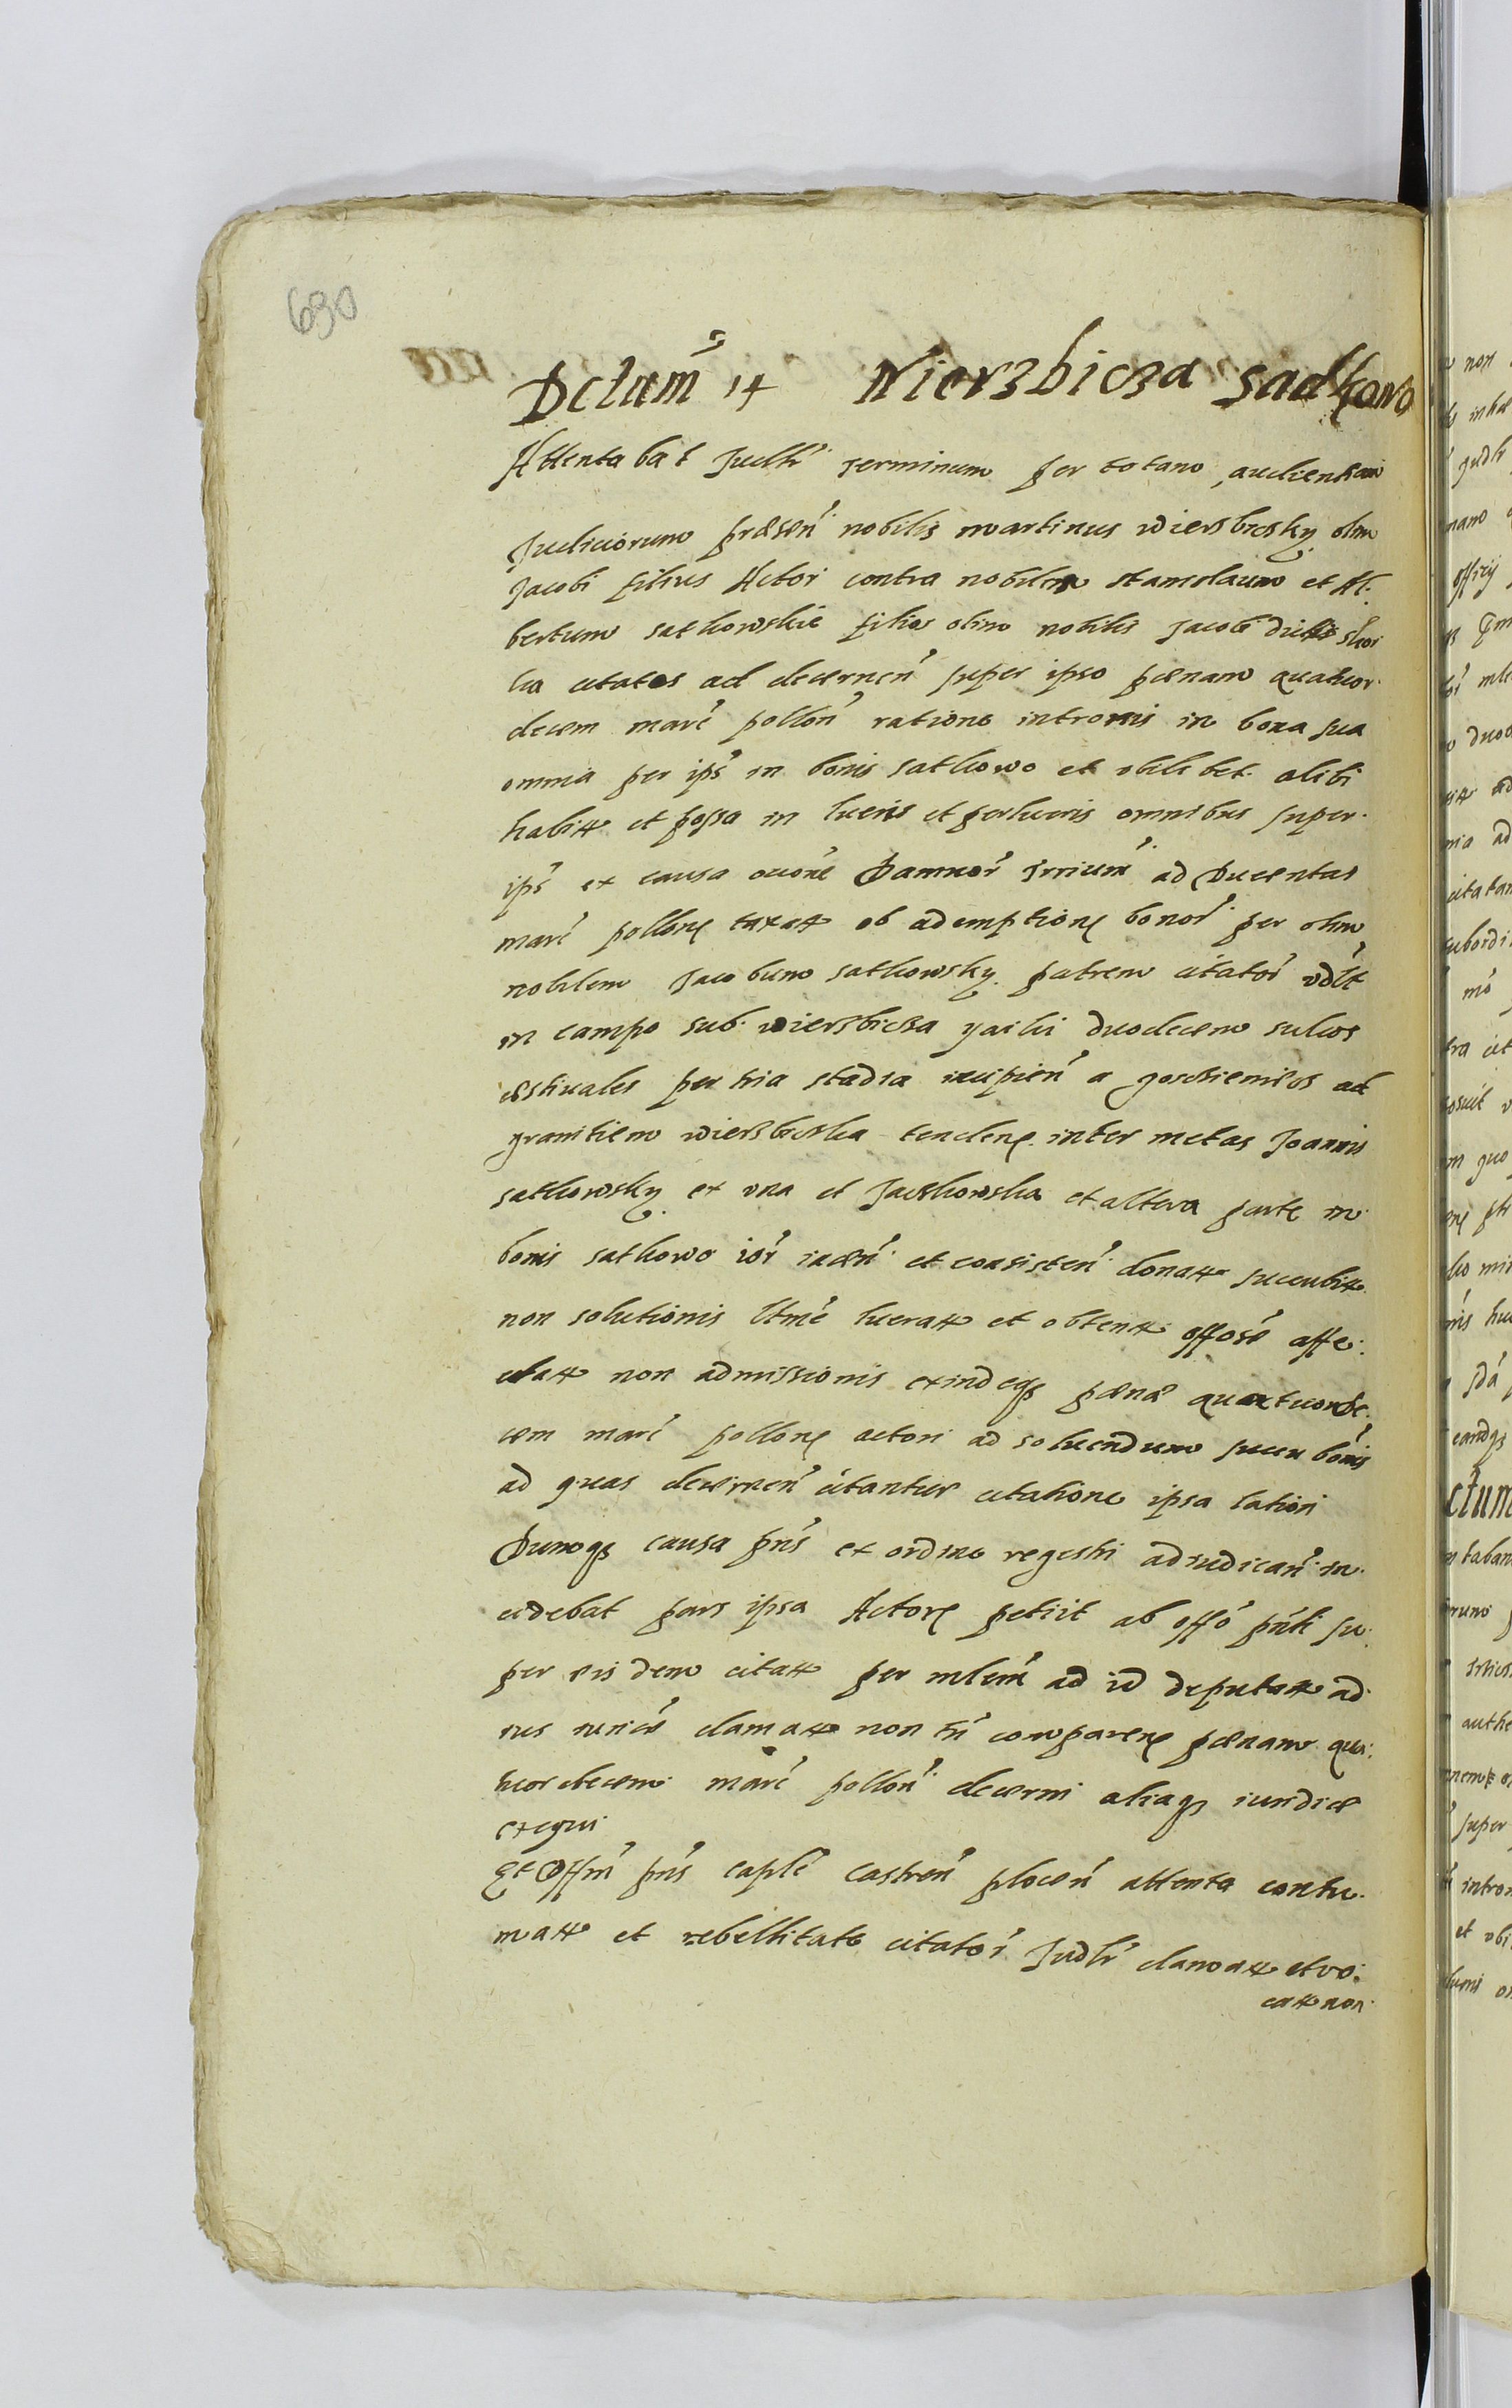 630
Dctum 14 Wierzbicza Sadkowo
Attentabat Judlr terminum per totam audientiam
Judiciorum præsen nobilis Martinus Wierzbiczky olim
Jacobi filius Actor contra nobilem Stanislaum et Al-
bertum Satkowskie filios olim nobilis Jacobi dicti
citatos ad decernen super ipso pœnam quatuor
decem marc pollon ratione intromis in bona sua
omnia per ips in bonis Satkowo et ubilibet alibi
habitt et possa in lucris et perlucris omnibus super
ips ex causa damnor ad Ducentas
marc pollonq taxatt ob ademptionq bonor per olim
nobilem Jacobum Satkowsky patrem citator vdlt
in campo sub Wierzbicza duodecem sulcos
estivales per tria stadia incipien a ad
granitiem Wierzbiczka tendenq inter metas Joannis
Satkowsky ex una et et altera parte in
bonis Satkowo iacen et consisten donatt succubitt
non solutionis ltme lucratt et obtentt offose affe-
ctatt non admissionis exindeqz pœnæ quattuorde-
cem marc pollonq actori ad soluendum succubonis
ad quas decernen citantur citatione ipsa latiori
Dumqz causa pns ex ordine regestri adiudican in
cidebat pars ipsa Actorq petiit ab offo pnti su-
per eisdem citatt per mlem ad id deputatt ad
ius clamatt non tn comparenq pœnam qua-
tuordecem marc pollon decerni aliaqz iuridice
exequi
Et Offm pns caple castren plocen attenta contu-
matt et rebellitate citator Judlr clamatt et vo-
catt non